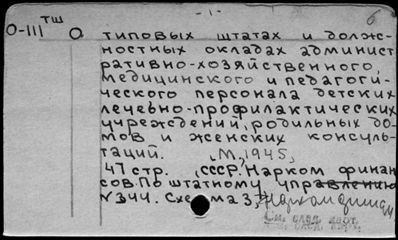 - 1 -
б
ТШ
О-III
О типовых штатах и долж-
ностных окладах админист
ративно-хозяйственного,
медицинского и педагоги-
ческого персонала детских
лечебно-профилактических
учреждений, родильных до
мов и женских консуль-
таций. М, 1945,
47 стр. (СССР, Нарком финан
сов. По штатному управлению
N344. Схема 3)
см. след. карт.